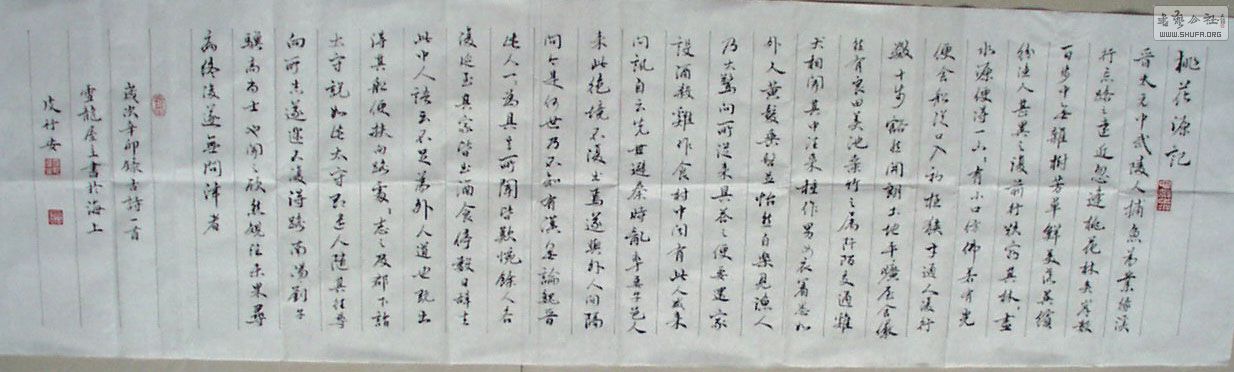 桃花源記
晉太元中武陵人捕魚為業緣溪
行忘路之遠近忽逢桃花林夾岸數
百步中無雜樹芳草鮮美落英繽
紛漁人甚異之復前行欲窮其林〻盡
水源便得一山〻有小口仿佛若有光
便舍船從口入初極狹才通人復行
數十步豁然開朗土地平曠屋舍儼
然有良田美池桑竹之屬阡陌交通雞
犬相聞其中往來種作男女衣著悉如
外人黃髮垂髫並怡然自樂見漁人
乃大驚問所從來具答之便要還家
設酒殺雞作食村中聞有此人咸來
問訊自云先世避秦時亂率妻子邑人
來此絕境不復出焉遂與外人間隔
問今是何世乃不知有漢無論魏晉
此人一〻為具言所聞皆歎惋餘人各
復延至其家皆出酒食停數日辭去
此中人語云不足為外人道也既出
得其船便扶向路處〻志之及郡下詣
太守說如此太守即遣人隨其往尋
向所志遂迷不復得路南陽劉子
驥高尚士也聞之欣然規往未果尋
病終後遂無問津者
歲次辛卯錄古詩一首
雪龍居主書於海上
書藝公社
WWW.SHUFA.ORG